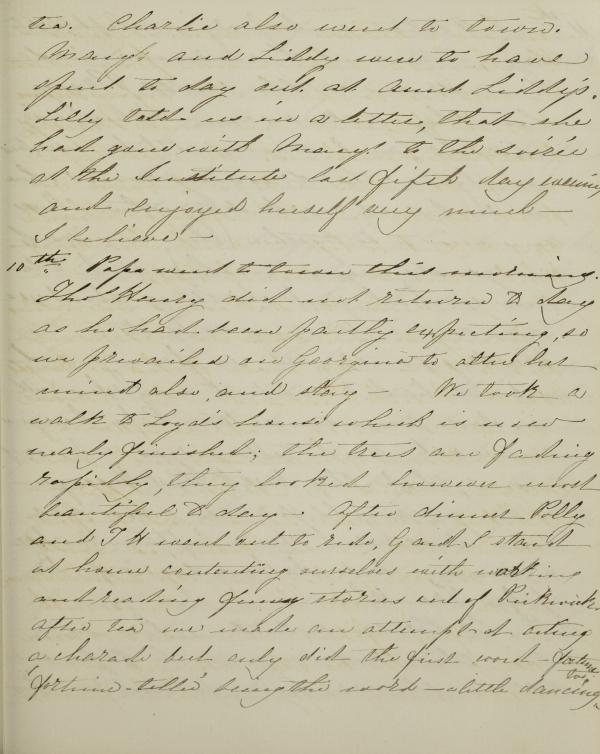 tea. Charlie also went to town.
Mary and Liddy were to have
spent to day out at Aunt Liddy's.
Lilly told us in a letter, that she
had gone with Mary to the soirée
at the Institute last fifth day evening
and enjoyed herself very much —
I believe —
10th. Papa went to town this morning.
Tho' Henry did not return to day
as he had been partly expecting, so
we prevailed on Georgina to alter her
mind also, and stay — We took a
walk to Loyd's house which is now
nearly finished; the trees are fading
rapidly, they looked however most
beautiful to day — After dinner Polly
and T H went out to ride, G and I staid
at home contenting ourselves with working
and reading funny stories out of Pickwick.
after tea we made an attempt at acting
a charade but only did the first word —
"fortune-teller" being the word — a little dancing,